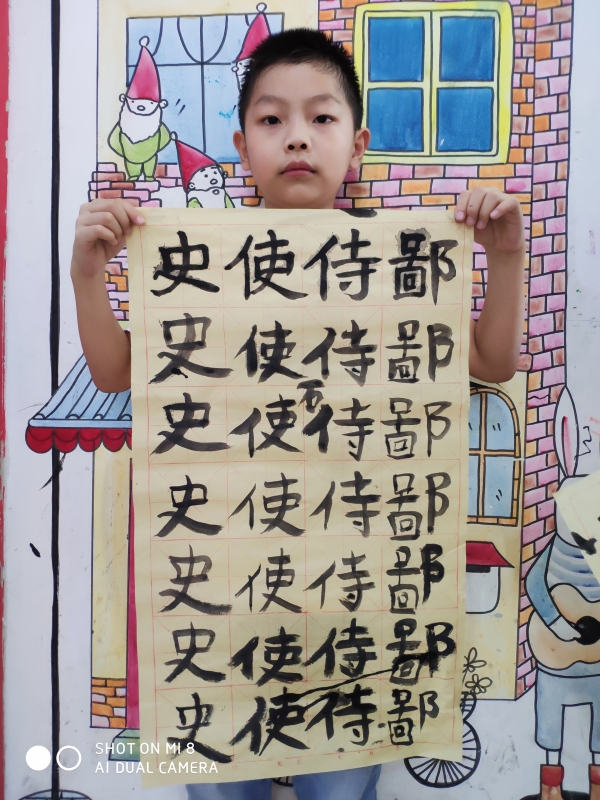 史使侍鄙
史使侍鄙
石
史使侍鄙
史使侍鄙
史使侍鄙
史使侍鄙
史使侍鄙
SHOT ON MI 8
AI DUAL CAMERA